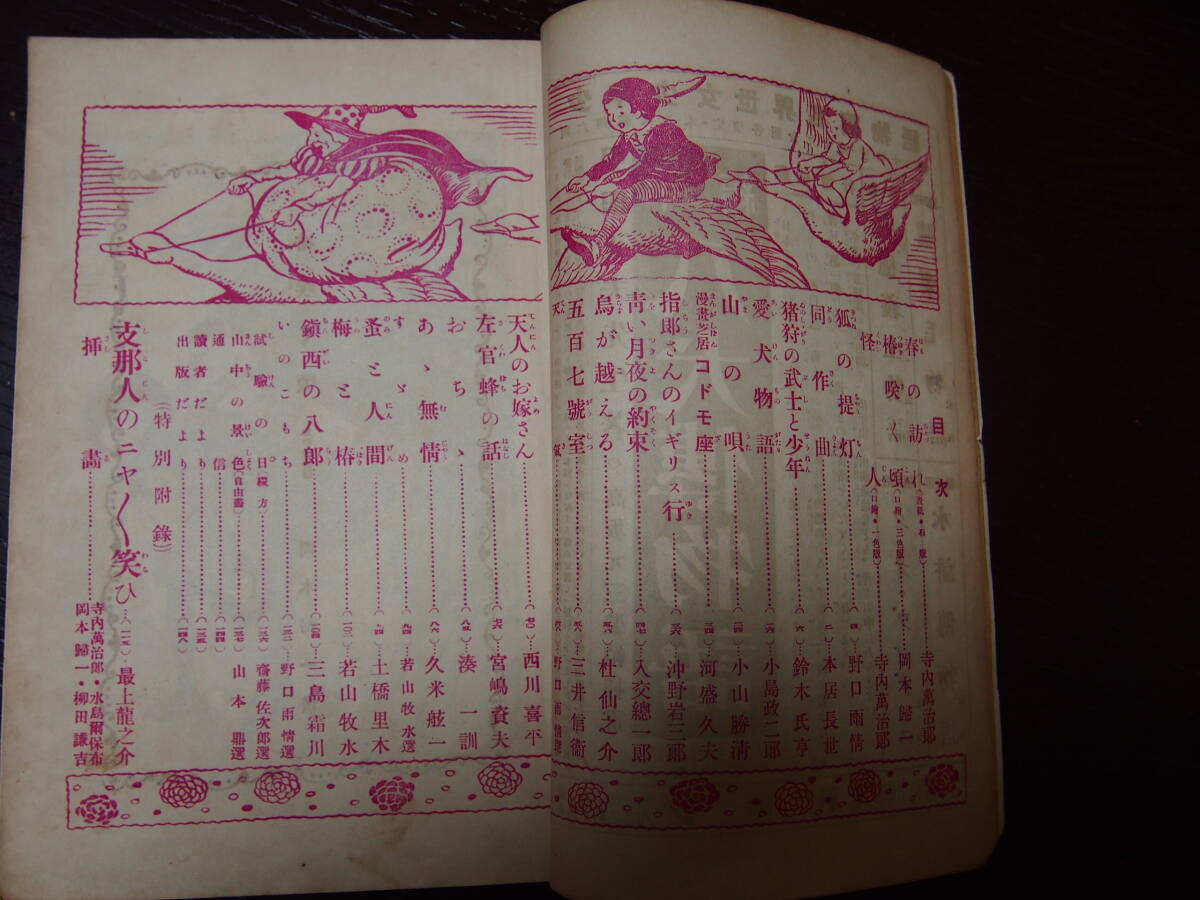 目次
春の訪れ（表紙・石版）……寺内萬治郎
椿咲く頃（口繪・三色版）……岡本歸一
怪人（口繪・一色版）……寺内萬治郎
狐の提灯……（四）……野口雨情
同作曲……（二）……本居長世
猪狩の武士と少年……（六）……鈴木氏亨
愛犬物語……小島政二郎
山の唄……小山勝清
漫畫芝居 コドモ座……（三四）……河盛久夫
指郎さんのイギリス行……（三六）……沖野岩三郎
靑い月夜の約束……（四七）……入交總一郎
烏が越える……（五六）……杜仙之介
五百七號室……（五八）……三井信衞
天氣……野口雨情
天人のお嫁さん……（七〇）……西川喜平
左官蜂の話……（七六）……宮嶋資夫
おちゝ……（八五）……湊一訓
あゝ無情……（八六）……久米舷一
すゞめ……（九四）……若山牧水選
蚤と人間……（九四）……土橋里木
梅と椿……（一〇二）……若山牧水
鎭西の八郎……（一〇四）……三島霜川
いのこもち……（一三二）……野口雨情選
試驗の日（綴方）……（一三六）……齋藤佐次郎選
山中の景色（自由畫）……（一三七）……山本鼎選
通信……（一四四）
讀者だより……（一三五）
出版だより……（一四八）
（特別附錄）
支那人のニヤ〱笑ひ…（一一五）…最上龍之介
挿畵……寺内萬治郎・水島爾保布
岡本歸一・柳田謙吉